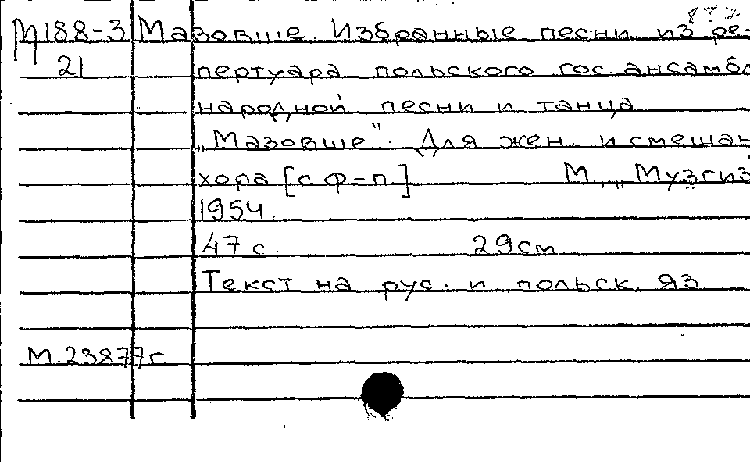 М188-3 Мазовше. Избранные песни из ре-
21 пертуара польского гос ансамбл
народной песни и танца
„Мазовше". Для жен. и смешан
хора [с ф-п.] М., „Музгиз
1954.
47 с 29см
Текст на рус. и польск. яз
М.23877г